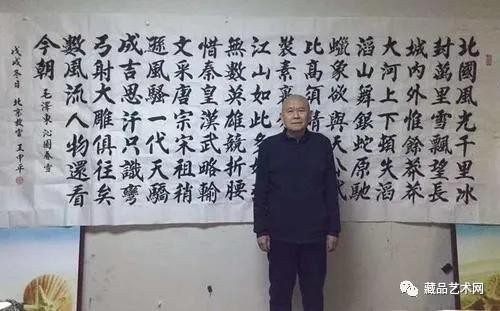 北國風光千里冰
封萬里雪飄望長
城内外惟餘莽莽
大河上下頓失滔
滔山舞銀蛇原馳
蠟象欲與天公試
比高須晴
裝素裹
江山如此多
無數英雄競折腰
惜秦皇漢武略輸
文采唐宗宋祖稍
遜風騷一代天驕
成吉思汗只識彎
弓射大雕俱往矣
數風流人物還看
今朝 毛澤東 沁園春雪
戊戌冬日 北京 王中平
藏品艺术网